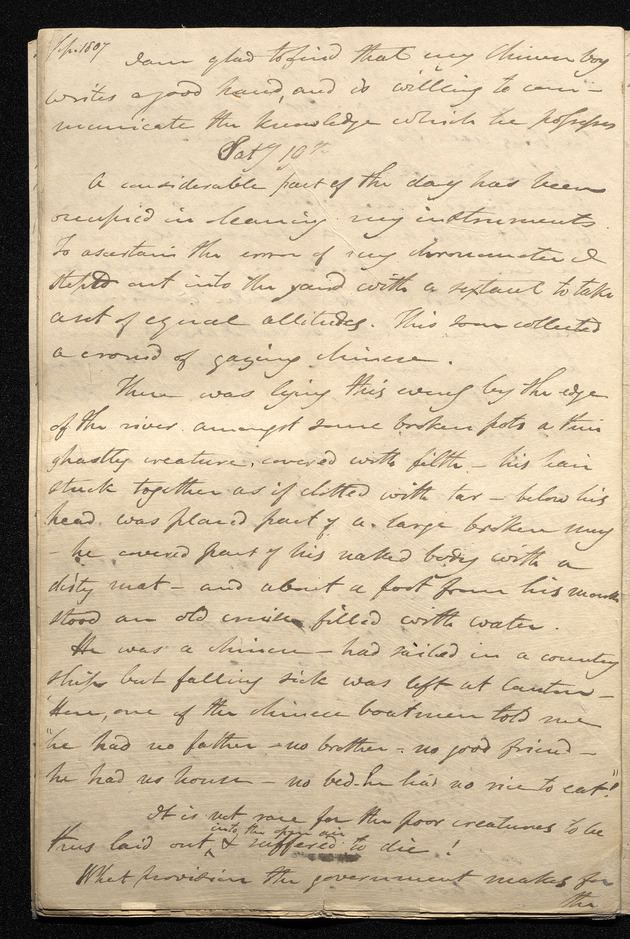 Sep. 1807
I am glad to find that my Chinese boy
writes a good hand, and is willing to com-
municate the knowledge which he possesses
Saty 10th
A considerable part of the day has been
occupied in cleaning my instruments.
To ascertain the error of my chronometer I
stept out into the yard with a sextant to take
a set of equal altitudes. This soon collected
a crowd of gazing Chinese.
There was lying this eveng by the edge
of the river amongst some broken pots a thin
ghastly creature, covered with filth – his hair
stuck together as if clotted with tar – below his
head was placed part of a large broken mug
– he covered part of his naked body with a
dirty mat – and about a foot from his mouth
stood an old filled with water.
He was a Chinese – had sailed in a country
ship but falling sick was left at Canton –
Here, one of the Chinese boatmen told me
"he had no father – no brother – no good friend –
he had no house – no bed – he had no rice to eat!"
It is not rare for the poor creatures to be
thus laid out into the open air & suffered to die!
What provision the government makes for
the